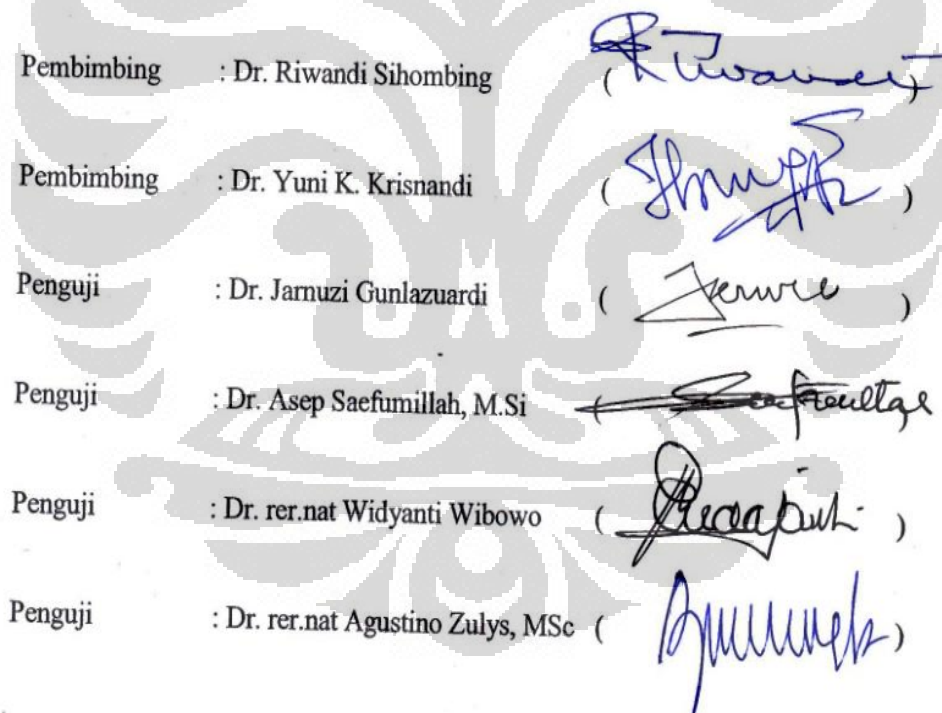 Pembimbing : Dr. Riwandi Sihombing ( )
Pembimbing : Dr. Yuni K. Krisnandi ( )
Penguji : Dr. Jarnuzi Gunlazuardi ( )
Penguji : Dr. Asep Saefumillah, M.Si (
Penguji : Dr. rer.nat Widyanti Wibowo ( )
Penguji : Dr. rer.nat Agustino Zulys, MSc ( )